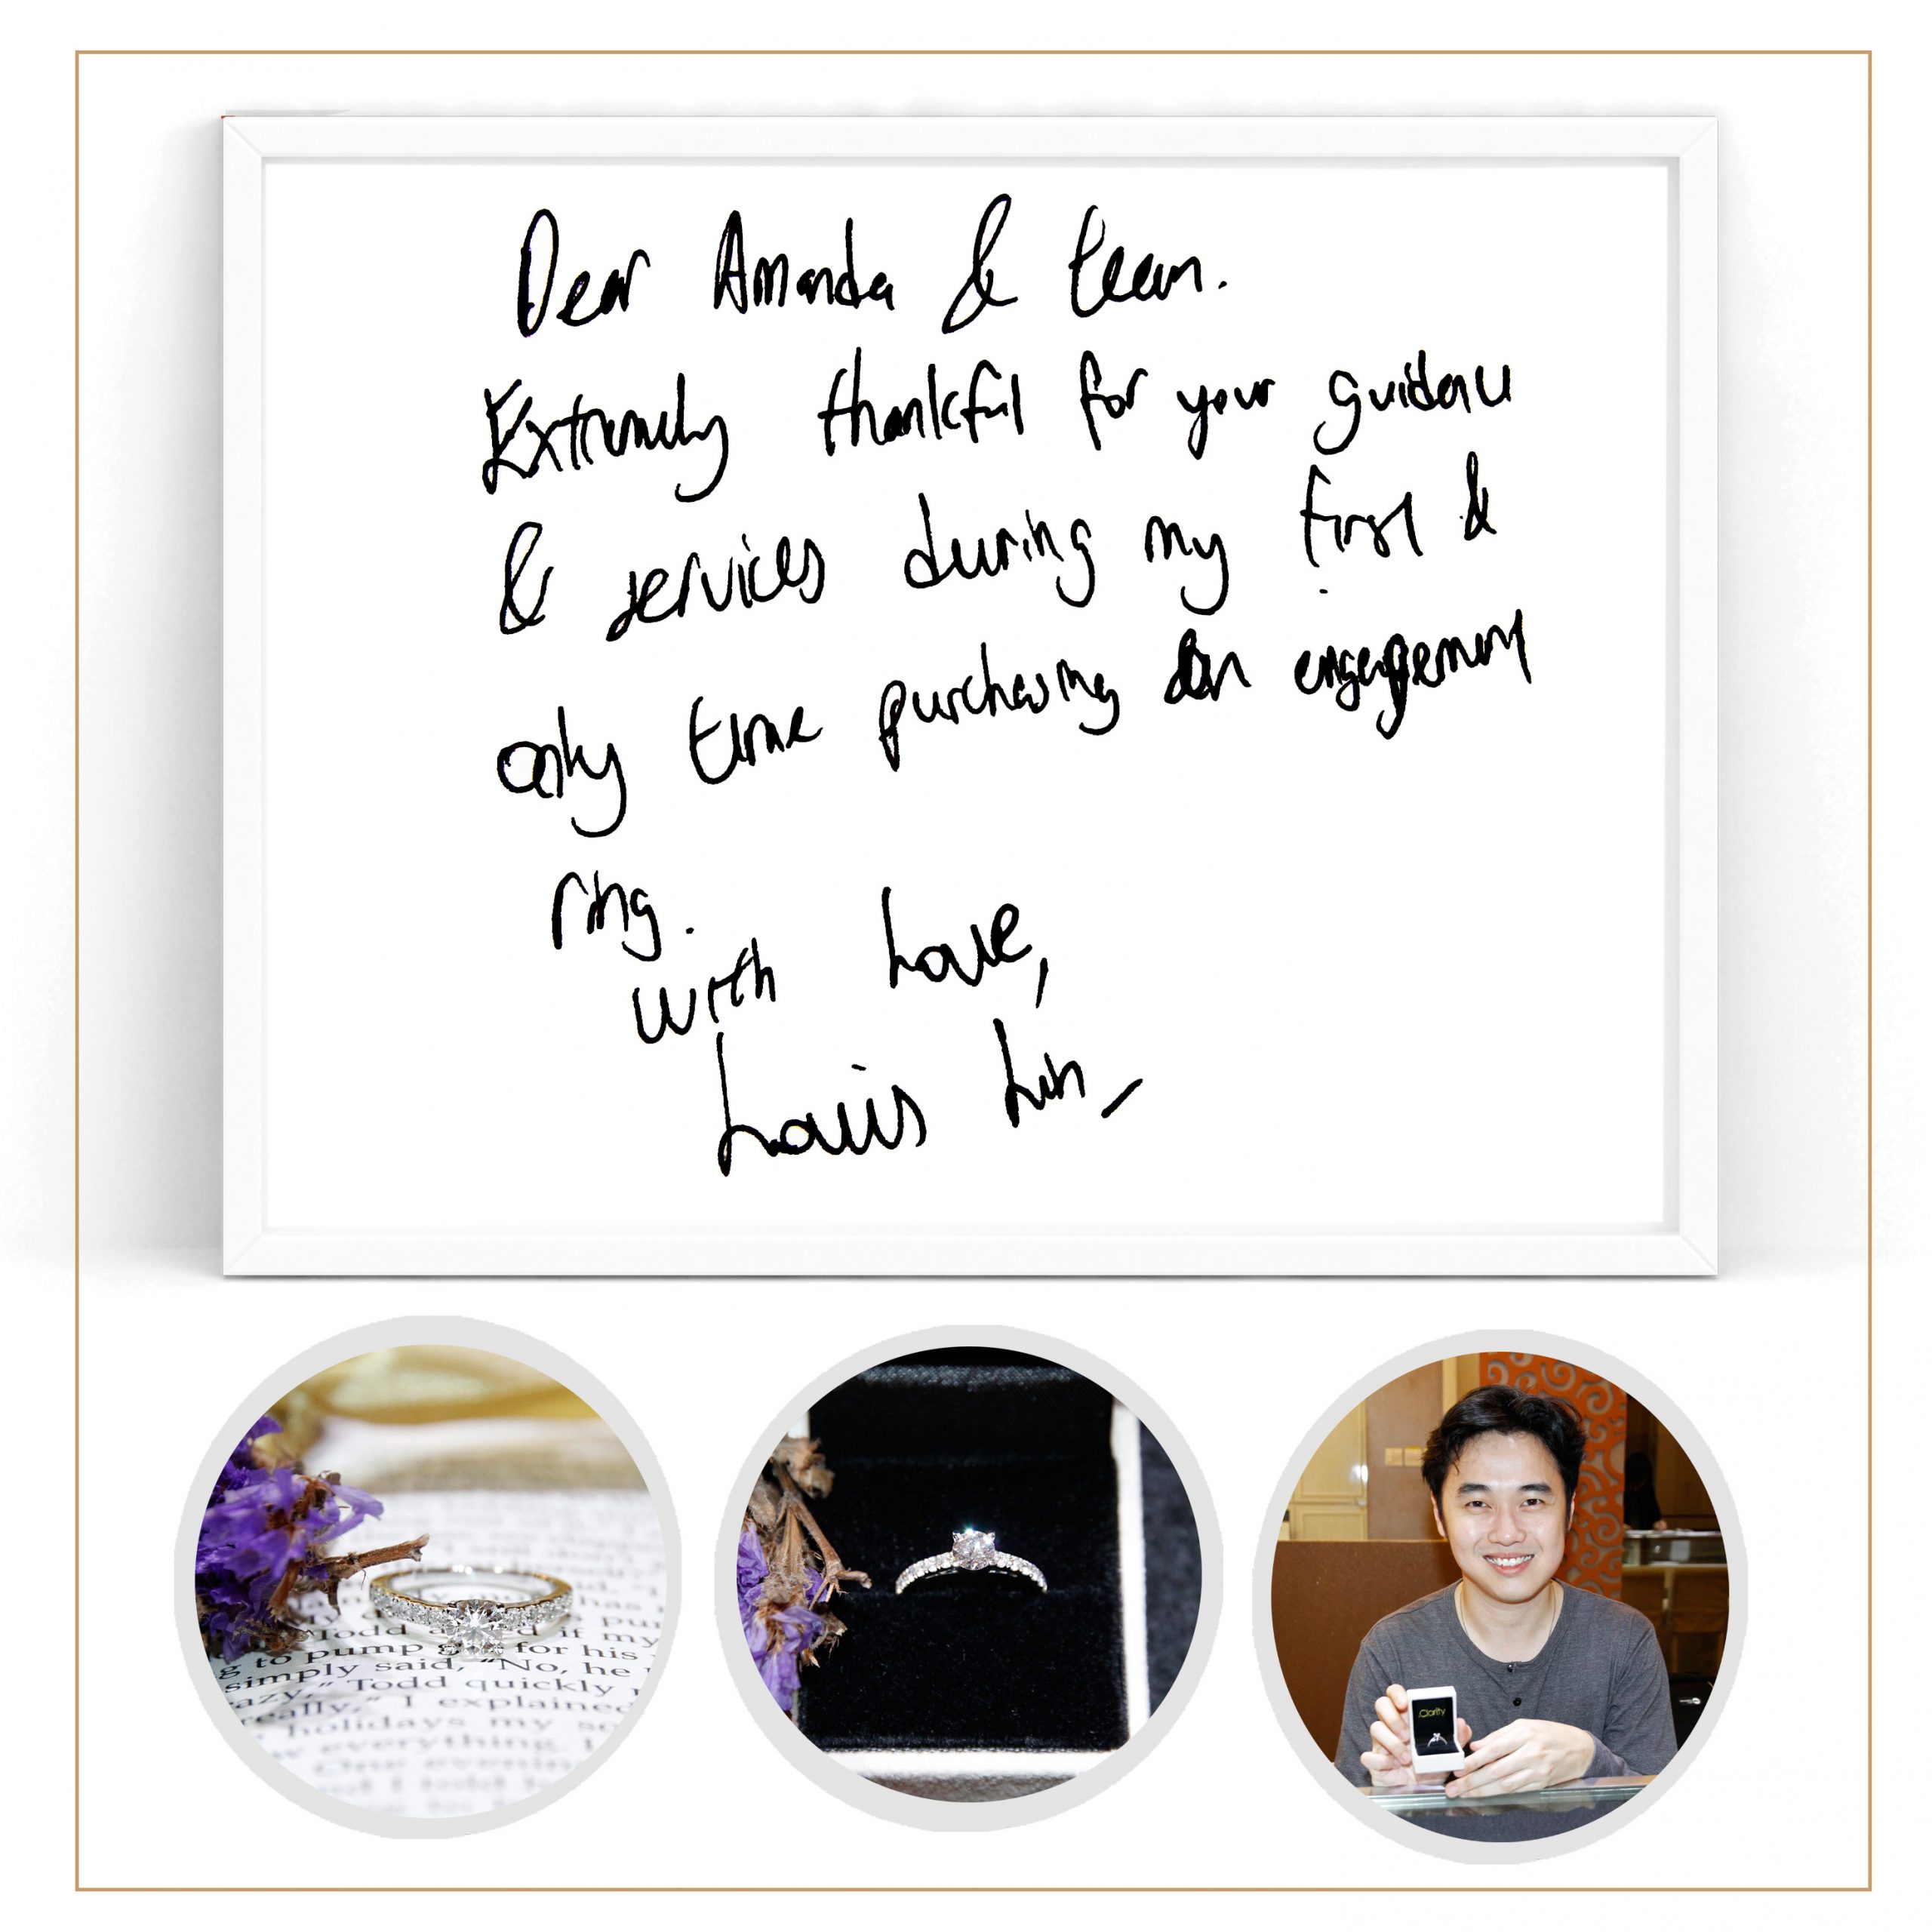 Dear Amanda & team.
Extremely thankful for your guidance
& services during my first &
only time purchasing an engagement
ring.
with Love,
Louis Lin
Todd
if my
g to pump
for his
simply said, "No, he
azy," Todd quickly
really," I explained
holidays my so
everything. I
One evenin
Clarity